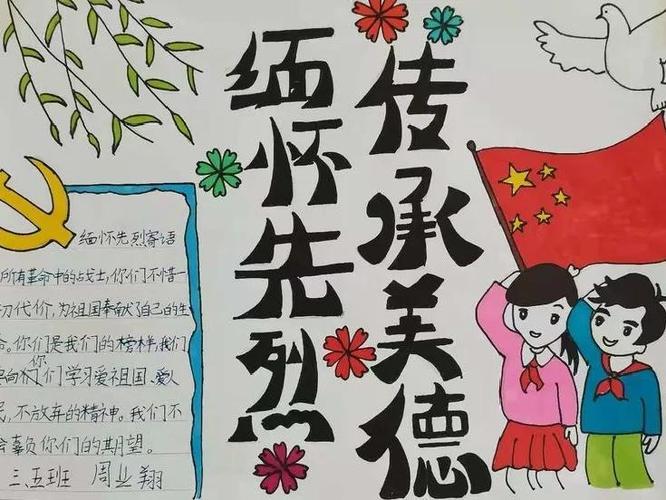 缅怀先烈
传承美德
缅怀先烈寄语
所有革命中的战士,你们不惜一
切代价,为祖国奉献了自己的生
命。你们是我们的榜样,我们
向你们学习爱祖国、爱人
民,不放弃的精神。我们不
会辜负你们的期望。
三、五班 周业翔